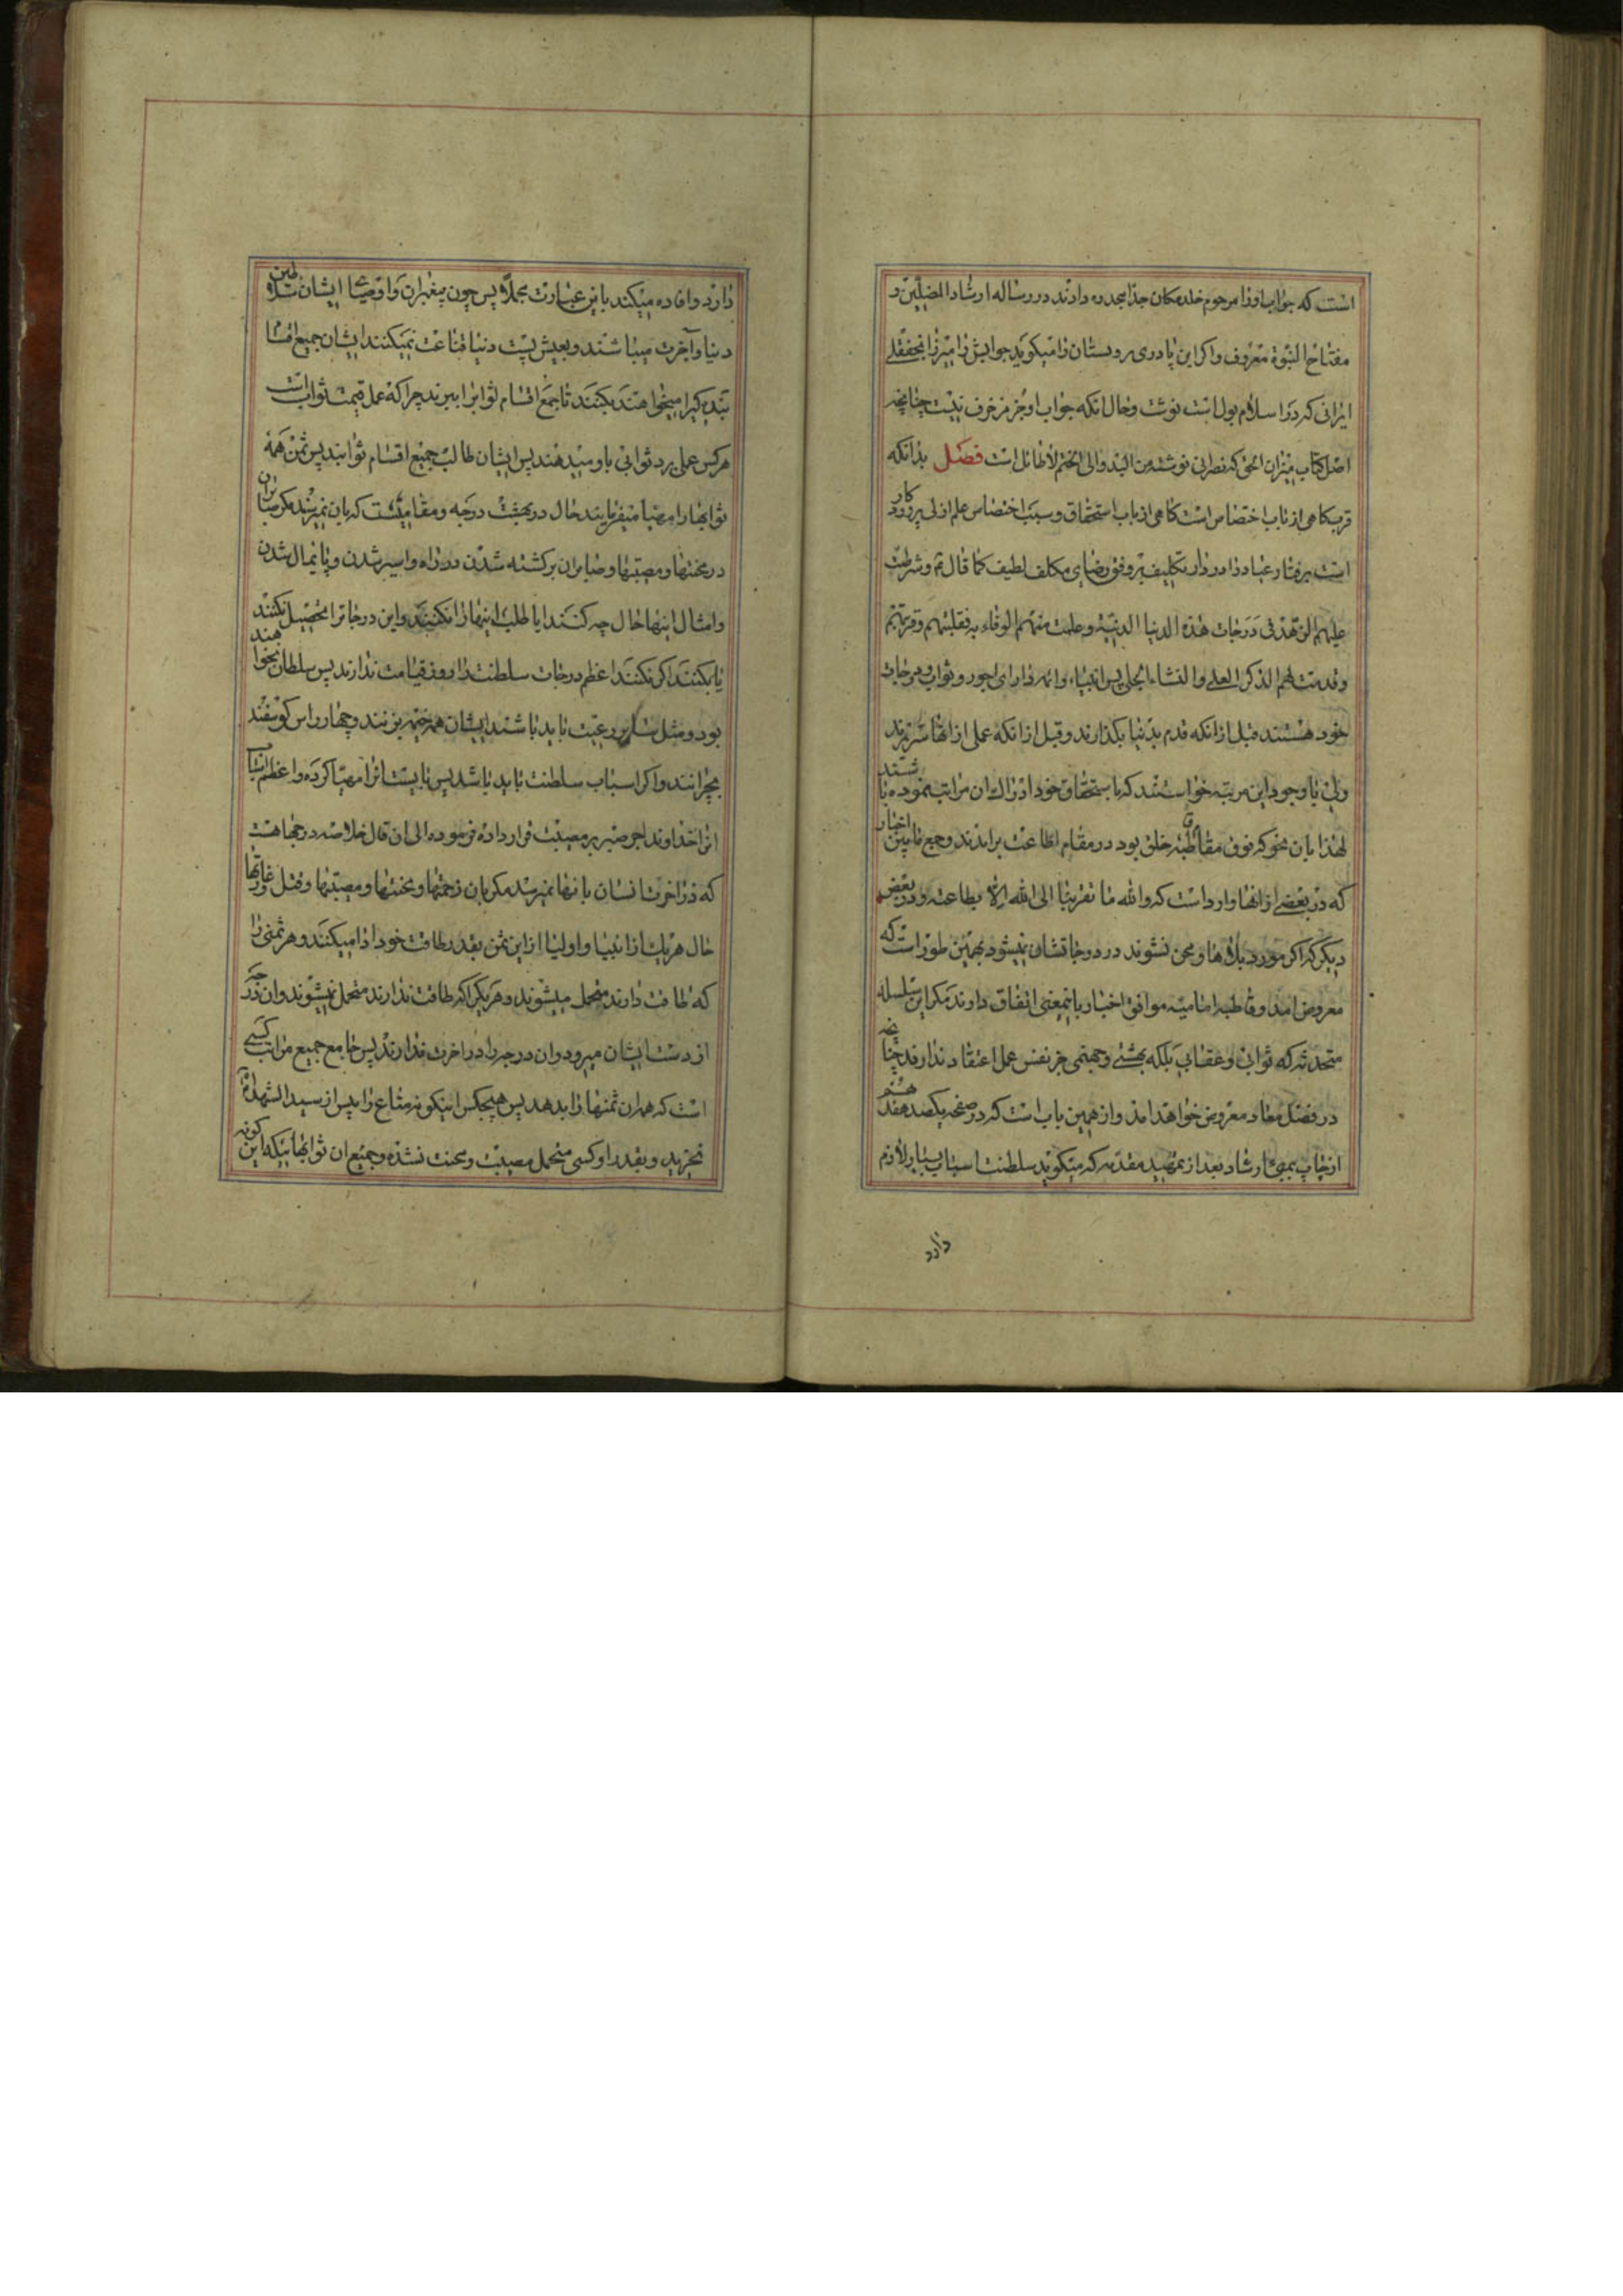 است که جواب او را مرحوم خلد مکان جد امجد ره دادند در رساله ارشاد المضلین و
مفتاح النبوة معروف و اکر این پادری پروبستان را میکوید جوابش را میرزا نجفعلی
ایرانی که در اسلامبول است نوشت و حال انکه جواب او جز مزخرف نیست چنانچه
اصل کتاب میزان الحق که نصرانی نوشته من البدو الی الختم لا طائل است فصل بدانکه
قرب کاهی از باب اختصاص است کاهی از باب استحقاق و سبب اختصاص علم ازلی پروردکار
است برفتار عباد را در دار تکلیف بر وفق رضای مکلف لطیف کما قال ثم و شرطت
علیهم الزهد فی درجات هذه الدنیا الدنیة و علمت منهم الوفاء به فقبلتهم و قربتهم
و قدمت لهم الذکر العلی و الثناء الجلی پس انبیاء و ائمه دارای اجور و ثواب و درجات
خود هستند قبل از انکه قدم بدنیا بکذارند و قبل از انکه عملی از انها سر بزند
ولی با وجود این مرتبه خواستند که باستحقاق خود ادراک ان مراتب نموده باشند
لهذا بان نحو که فوق طاقت خلق بود در مقام اطاعت برامدند و جمع مابین اخبار
که در بعضی از انها وارد است که والله ما تقربنا الی الله الا بطاعته و در بعض
دیکر که اکر مورد بلاها و محن نشوند در درجاتشان نمیشود بهمین طور است که
معروض امد و قاطبه امامیه موافق اخبار باینمعنی اتفاق دارند مکر این سلسله
متحدثه که ثوابی و عقابی بلکه بهشتی و جهنمی جز نفس عمل اعتقاد ندارند چنانچه
در فصل معاد معروض خواهد امد و از همین باب است که در صفحه یکصد هفدهم
از چاپ بمبئ ارشاد بعد از تمهید مقدمه که میکوید سلطنت اسباب بسیار لازم
دارد
دارد و افاده میکند باین عبارت مجملا پس چون پیغمبران و اوصیای ایشان سلاطین
دنیا و آخرت میباشند و بعیش پست دنیا قناعت نمیکنند ایشان جمیع اقسام
بندکیرا میخواهند بکنند تا جمع اقسام ثوابرا ببرند چرا که عمل قیمت ثواب است
هر کس عملی برد ثوابی باو میدهند پس ایشان طالب جمیع اقسام ثوابند پس ثمن همه
ثوابها را مهیا میفرمایند حال در بهشت درجه و مقامیست که بان نمیرسند مکر صابران
در محنتها و مصیبتها و صابران بر کشته شدن در راه و اسیر شدن و پایمال شدن
و امثال اینها حال چه کنند ایا طلب اینها را نکنند و این درجاترا تحصیل نکنند
یا بکنند اکر نکنند اعظم درجات سلطنت را روز قیامت ندارند پس سلطان نخواهند
بود و مثل سایر رعیت باید باشند ایشان هم خیمه بزنند و چهار راس کوسفند
بچرانند و اکر اسباب سلطنت باید باشد پس بایست انرا مهیا کرده و اعظم اسباب
انرا خداوند اجر صبر بر مصیبت قرار داده فرموده الی ان قال خلاصه درجها هست
که در اخرت انسان بانها نمیرسد مکر بان زحمتها و محنتها و مصیبتها و قتل و غارتها
حال هر یک از انبیا و اولیا از این ثمن بقدر طاقت خود ادا میکنند و هر ثمنی را
که طاقت دارند متحمل میشوند و هر یکرا که طاقت ندارند متحمل نمیشوند و ان درجه
از دست ایشان میرود و ان درجه را در اخرت ندارند پس جامع جمیع مراتب کسی
است که همه ان ثمنها را بدهد پس هیچکس اینکونه متاع را بیش از سید الشهداء
نخرید و بقدر او کسی متحمل مصیبت و محنت نشده و جمیع ان ثوابهائیکه این کونه